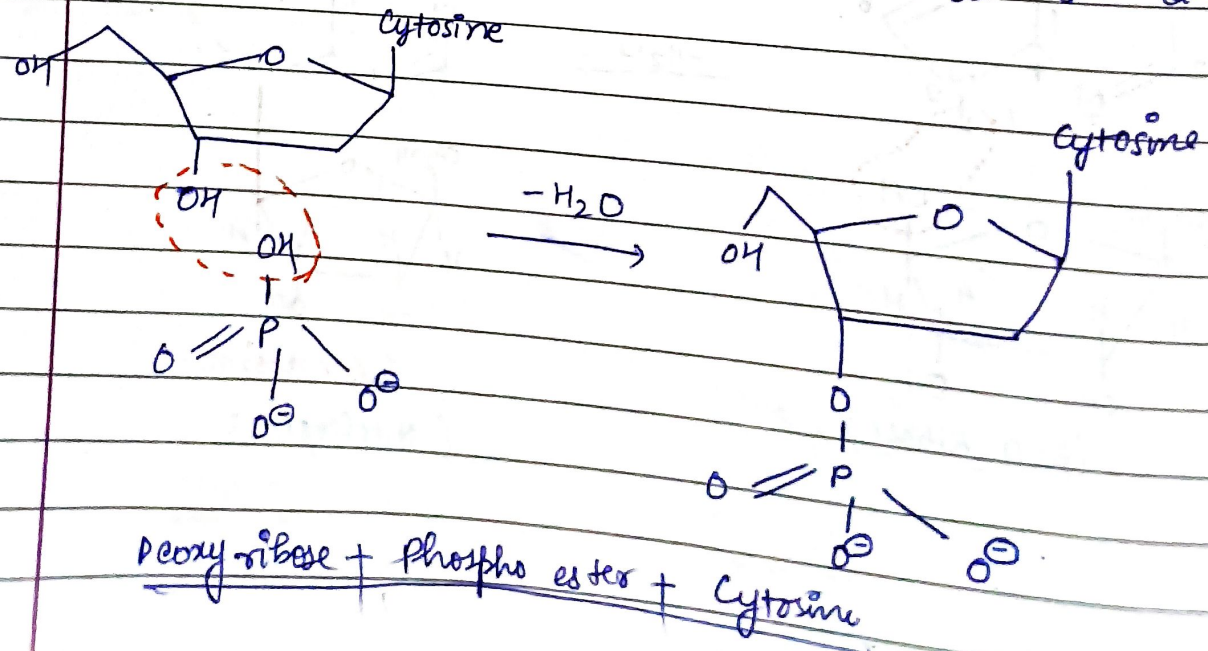 Cytosine
OH
O
OH
OH
P
O
O⊖
O⊖
-H2O
Cytosine
O
OH
O
O
P
O⊖
O⊖
Deoxyribose + Phospho ester + Cytosine